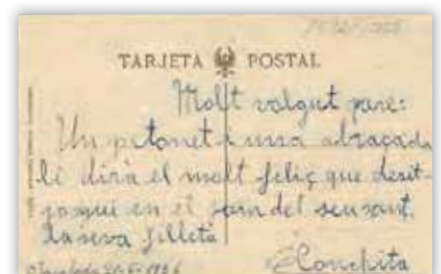 TARJETA POSTAL
Molt volgut pare:
Un petonet i una abraçada
li dirà el molt feliç que desit-
jo sigui en el jorn del seu sant,
la seva filleta
Conchita